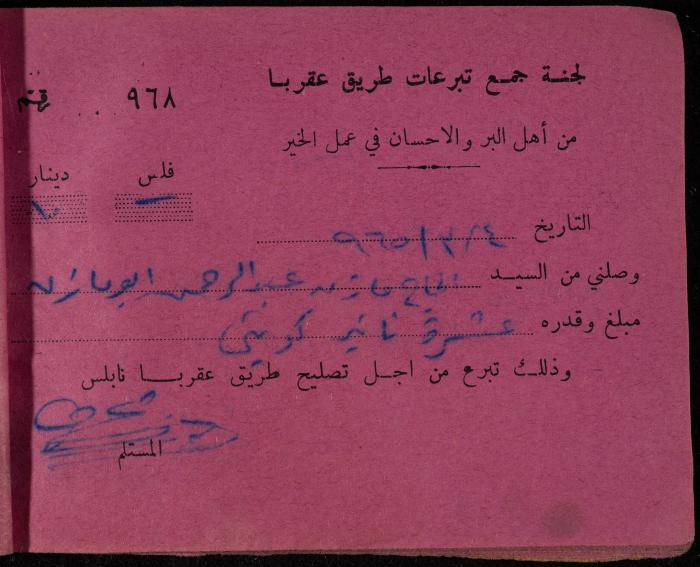 لجنة جمع تبرعات طريق عقربا
رقم ٩٦٨
من أهل البر والاحسان في عمل الخير
فلس دينار
- ١٠
التاريخ ٢٤ / ٣ / ٩٦٥
وصلني من السيد الحاج مازن عبدالرحمن ابو مازن
مبلغ وقدره عشرة دنانير كويتي
وذلك تبرع من اجل تصليح طريق عقربا نابلس
المستلم